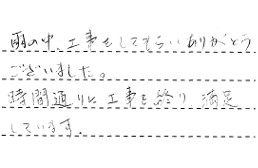 雨の中、工事をしてもらいありがとう
ございました。
時間通りに工事も終り、満足
しています。